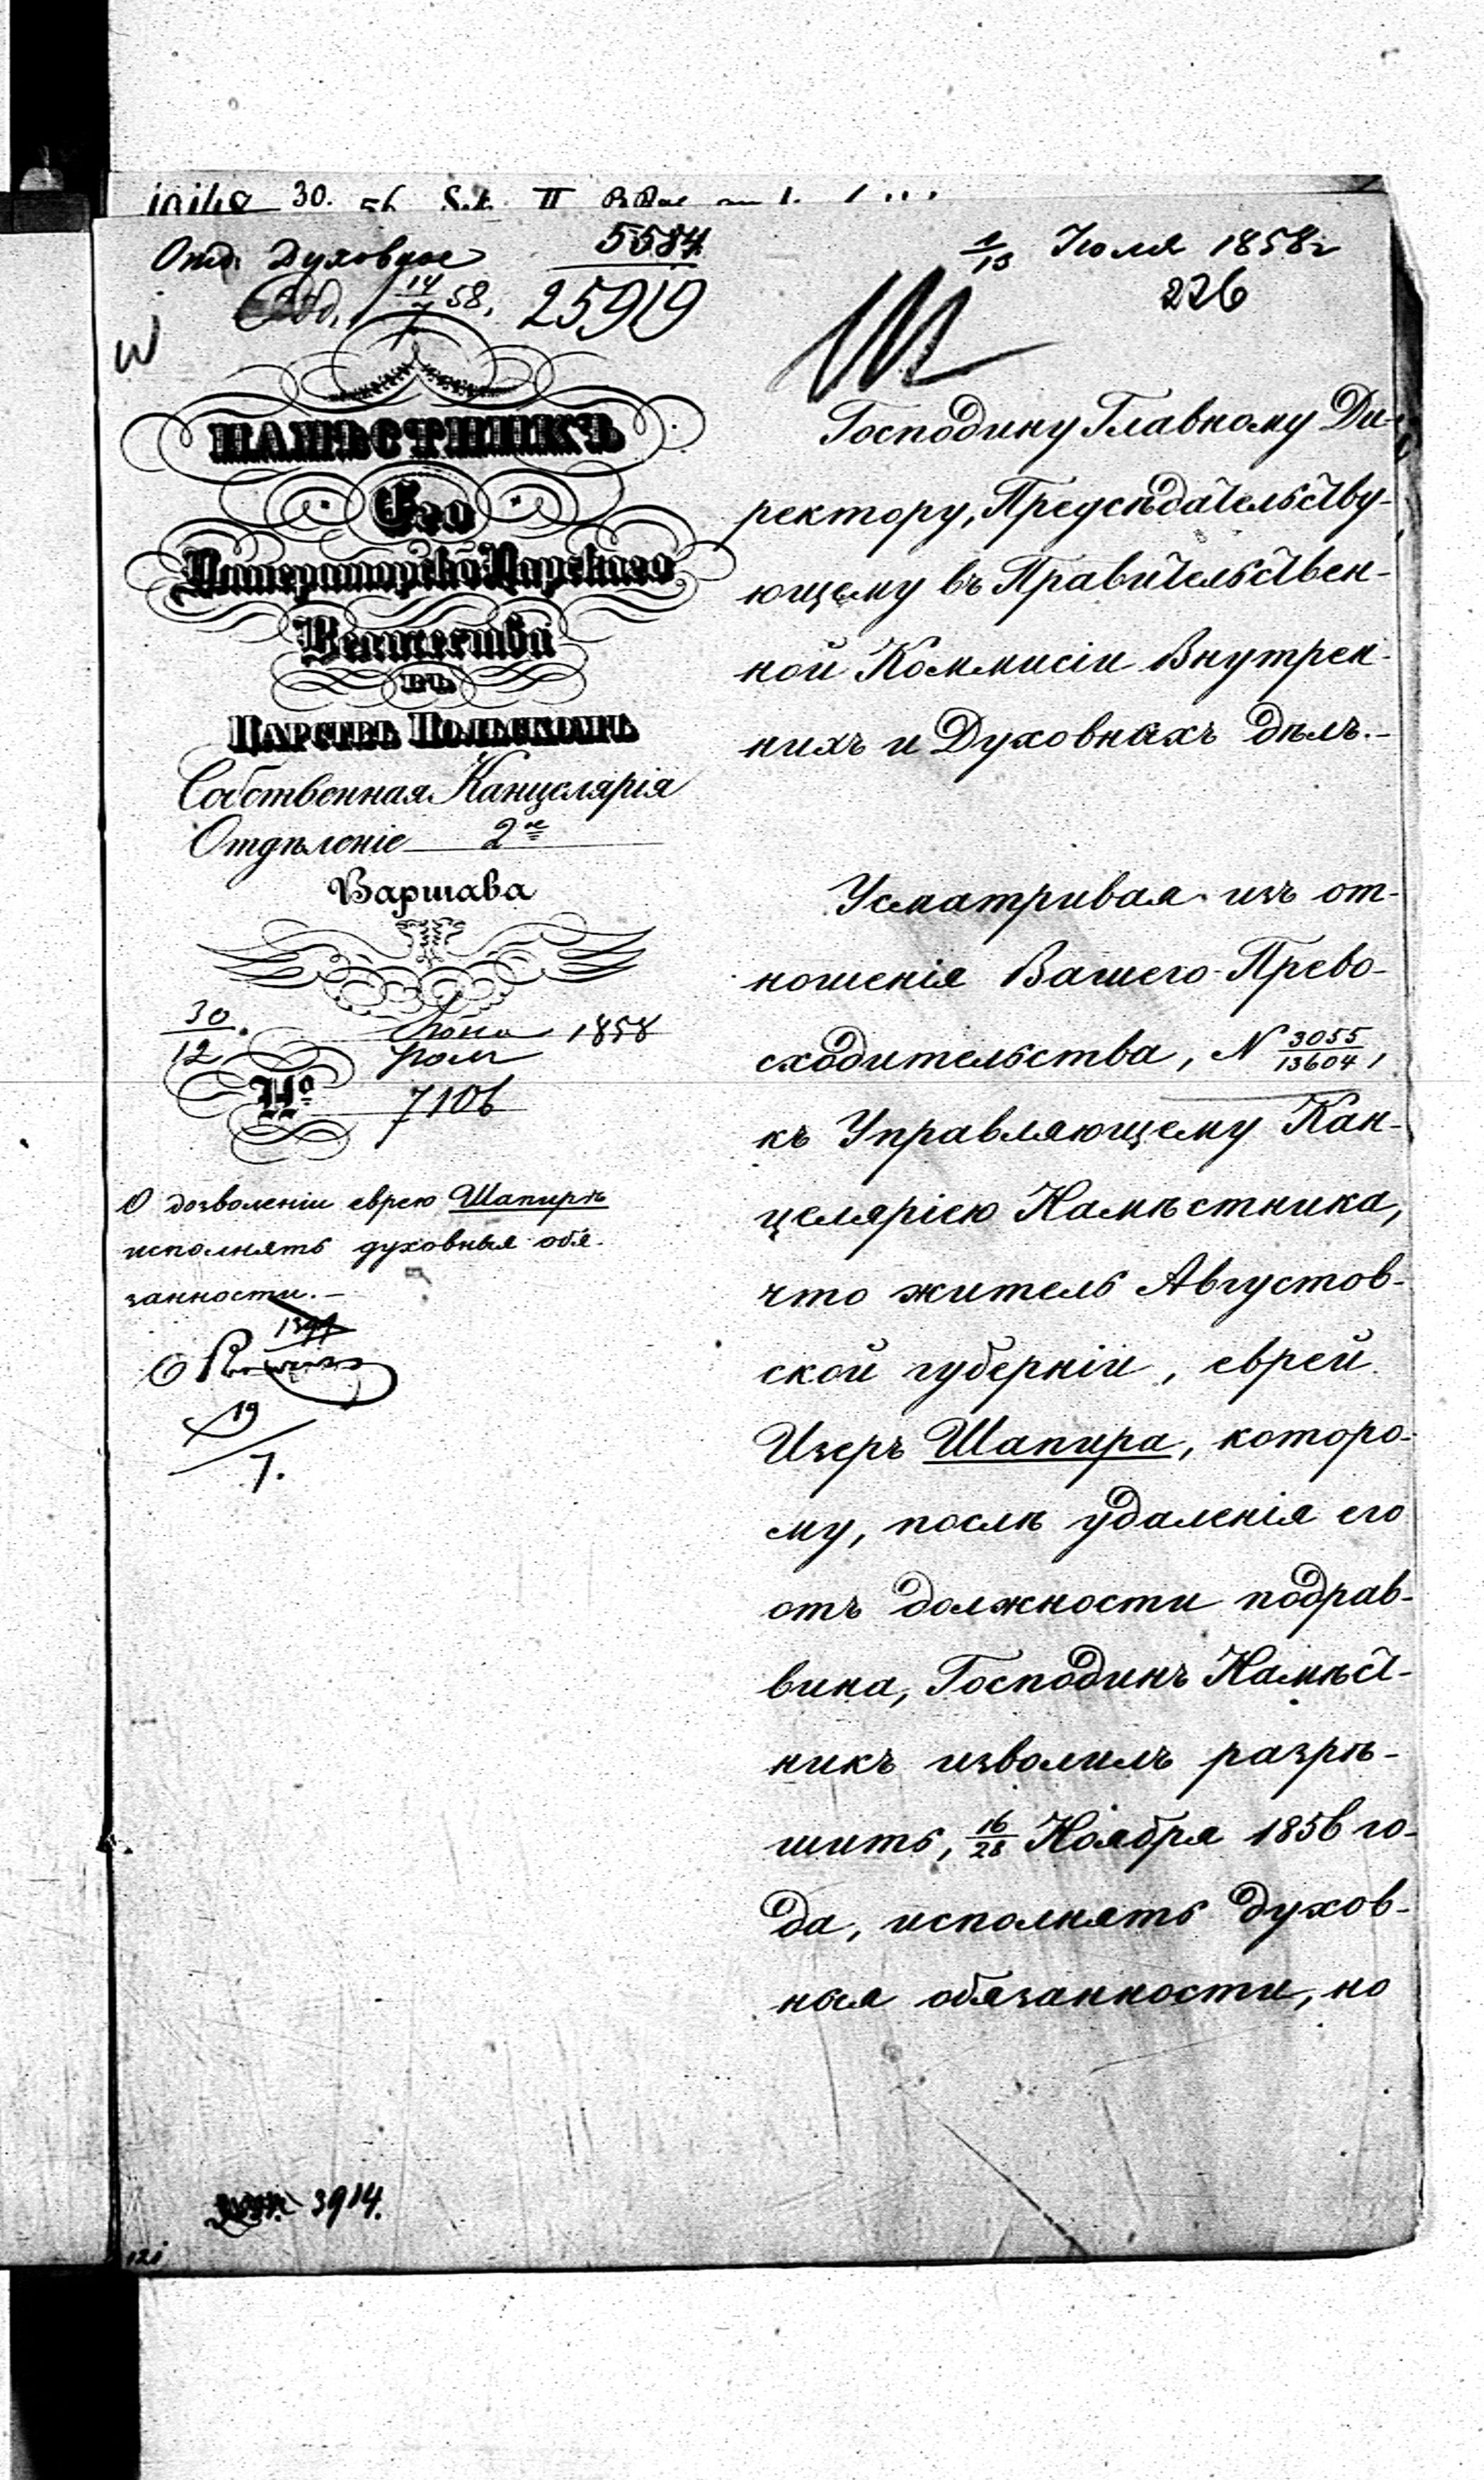 Отд. Духовное 5584
14/7 58. 25919
1/13 Іюля 1858 г
226
НАМѢСТНИКЪ
Его
Императорско Царскаго
Величества
въ
Царствѣ Польскомъ
Собственная Канцелярія
Отдѣленіе 2ое
Варшава
30/12 Іюня/Іюля 1858
№ 7106
О дозволеніи еврею Шапирѣ
исполнять духовныя обя-
занности.—
19/7.
3914.
Господину Главному Ди-
ректору, Предсѣдательству-
ющему въ Правительствен-
ной Коммисіи Внутрен-
нихъ и Духовныхъ дѣлъ.—
Усматривая изъ от-
ношенія Вашего Прево-
сходительства, N 3055/13604,
къ Управляющему Кан-
целяріею Намѣстника,
что житель Августов-
ской губерніи, еврей
Изеръ Шапира, которо-
му, послѣ удаленія его
отъ должности подрав-
вина, Господинъ Намѣст-
никъ изволилъ разрѣ-
шить, 16/28 Ноября 1856 го-
да, исполнять духов-
ныя обязанности, но